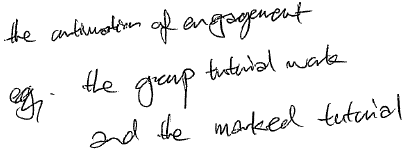 the continuation of engagement
eg, the group tutorial work
and the marked tutorial